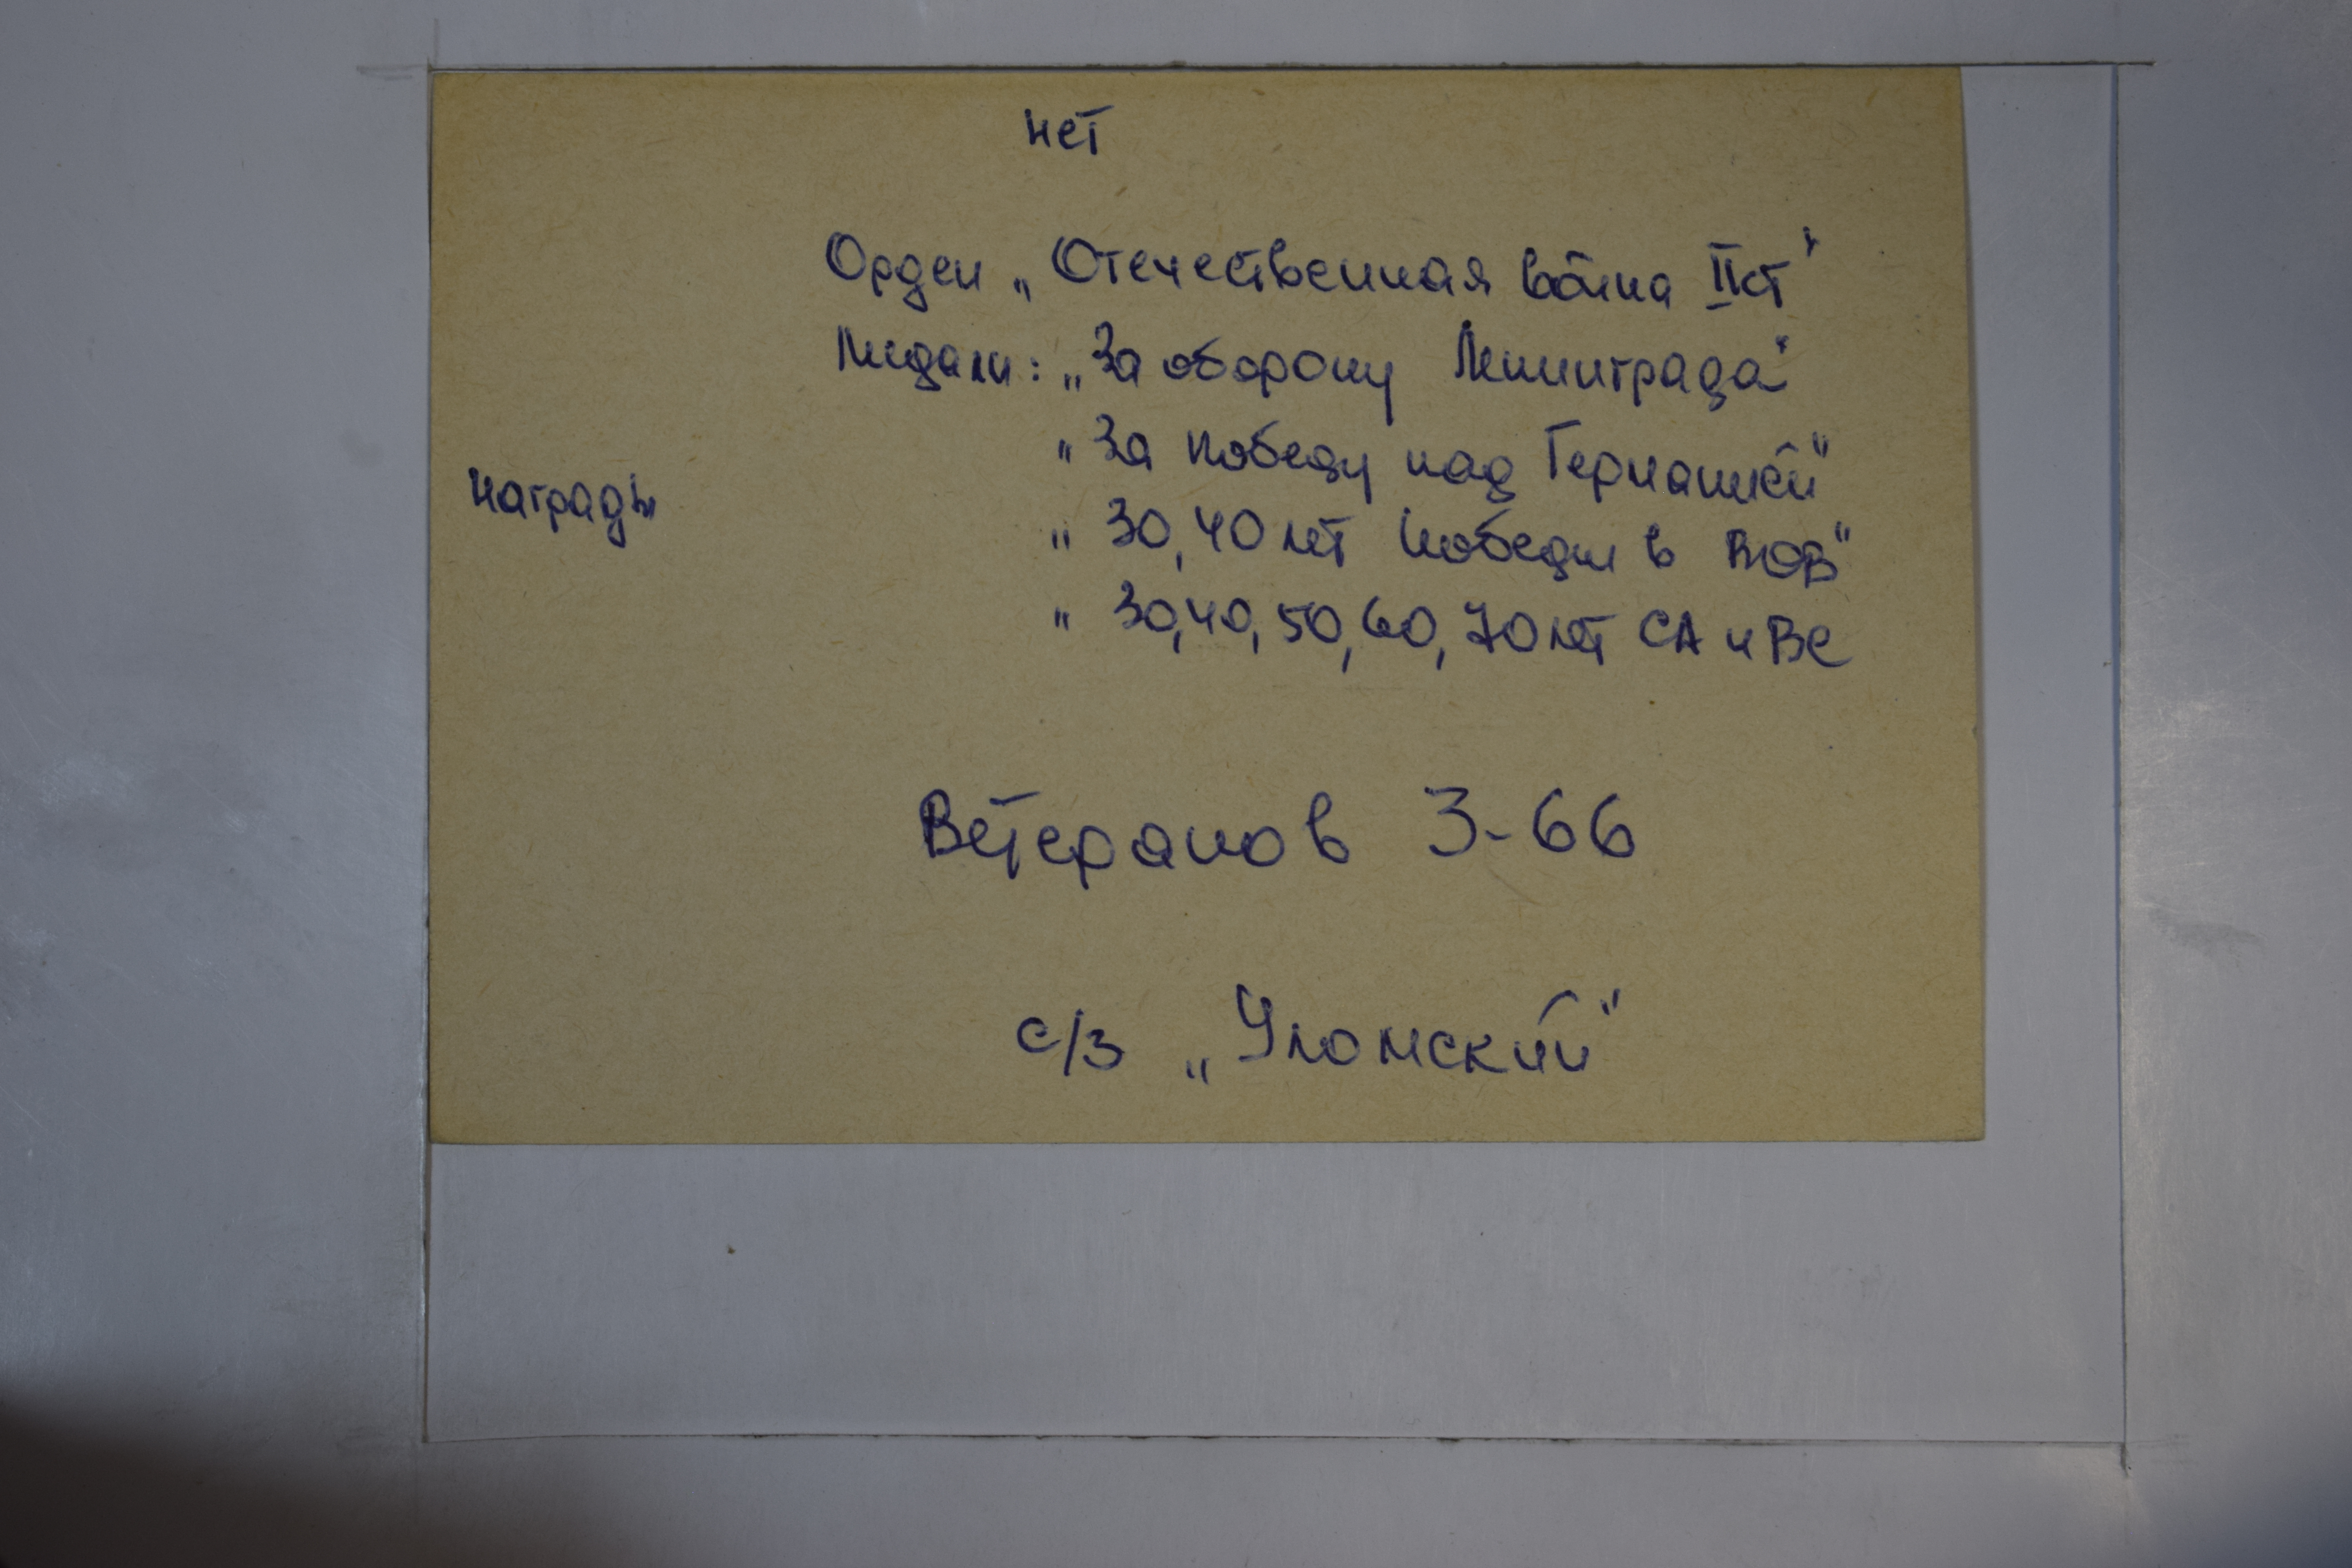 нет
Орден „Отечественная война II ст"
Медали: „За оборону Ленинграда"
„За победу над Германией"
награды
„30, 40 лет победы в ВОВ"
„30, 40, 50, 60, 70 лет СА и ВС
Ветеранов 3-66
с/з „Уломский"